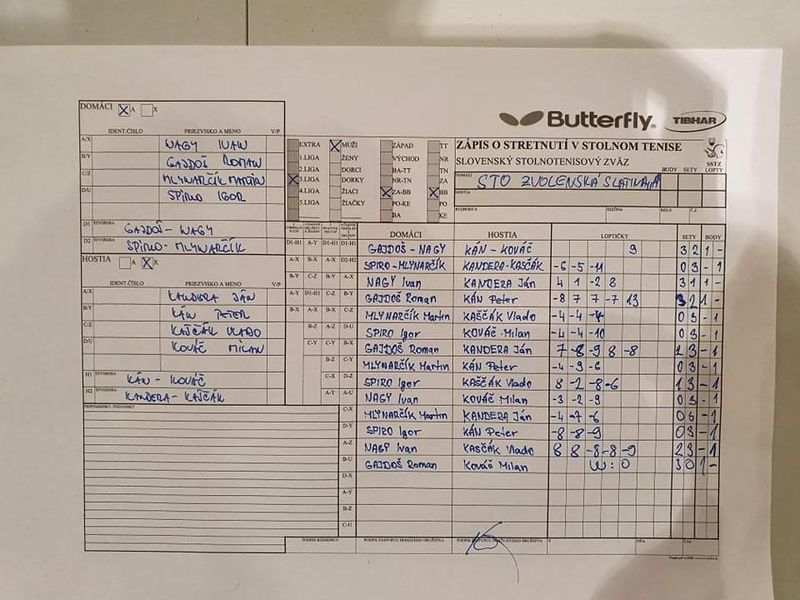 DOMÁCI A X
Butterfly. TIBHAR
IDENT.ČÍSLO PRIEZVISKO A MENO V/P
A/X NAGY IVAN
B/Y GAJDOŠ ROMAN
C/Z MLYNARČÍK MARTIN
D/U SPIRO IGOR
D1 ŠTVORHRA GAJDOŠ - NAGY
D2 ŠTVORHRA SPIRO - MLYNARČÍK
HOSTIA A X
IDENT.ČÍSLO PRIEZVISKO A MENO V/P
A/X KANDERA JÁN
B/Y KÁN PETER
C/Z KAŠČÁK VLADO
D/U KOVÁČ MILAN
H1 ŠTVORHRA KÁN - KOVÁČ
H2 ŠTVORHRA KANDERA - KAŠČÁK
PRIPOMIENKY, POZNÁMKY
EXTRA MUŽI ZÁPAD TT
1.LIGA ŽENY VÝCHOD NR
2.LIGA DORCI BA-TT TN
3.LIGA DORKY NR-TN ZA
4.LIGA ŽIACI ZA-BB BB
5.LIGA ŽIAČKY PO-KE PO
BA KE
ZÁPIS O STRETNUTÍ V STOLNOM TENISE
SLOVENSKÝ STOLNOTENISOVÝ ZVÄZ
SSTZ
BODY SETY LOPTY
DOMÁCI STO ZVOLENSKÁ SLATINA A
HOSTIA
ROZHODCA SEZÓNA KOLO Č.Z.
DOMÁCI HOSTIA LOPTIČKY SETY BODY
D1-H1 GAJDOŠ - NAGY KÁN - KOVÁČ 9 3 2 1 -
D2-H2 SPIRO - MLYNARČÍK KANDERA - KAŠČÁK -6 -5 -11 0 3 - 1
A-X NAGY Ivan KANDERA Ján 4 1 -2 8 3 1 1 -
B-Y GAJDOŠ Roman KÁN Peter -8 7 7 -7 13 3 2 1 -
C-Z MLYNARČÍK Martin KAŠČÁK Vlado -4 -4 0 3 - 1
D-U SPIRO Igor KOVÁČ Milan -4 -4 -10 0 3 - 1
B-X GAJDOŠ Roman KANDERA Ján 7 -8 -9 8 -8 2 3 - 1
C-Y MLYNARČÍK Martin KÁN Peter -4 -9 -6 0 3 - 1
D-Z SPIRO Igor KAŠČÁK Vlado 8 -2 -8 -6 1 3 - 1
A-U NAGY Ivan KOVÁČ Milan -3 -2 -9 0 3 - 1
C-X MLYNARČÍK Martin KANDERA Ján -4 -7 -6 0 3 - 1
D-Y SPIRO Igor KÁN Peter -8 -8 -9 0 3 - 1
A-Z NAGY Ivan KAŠČÁK Vlado 8 8 -8 -8 -9 2 3 - 1
B-U GAJDOŠ Roman Kováč Milan W:O 3 0 1 -
D-X
A-Y
B-Z
C-U
PODPIS ROZHODCU PODPIS ZÁSTUPCU DOMÁCEHO DRUŽSTVA PODPIS ZÁSTUPCU HOSŤUJÚCEHO DRUŽSTVA V DŇA ČAS